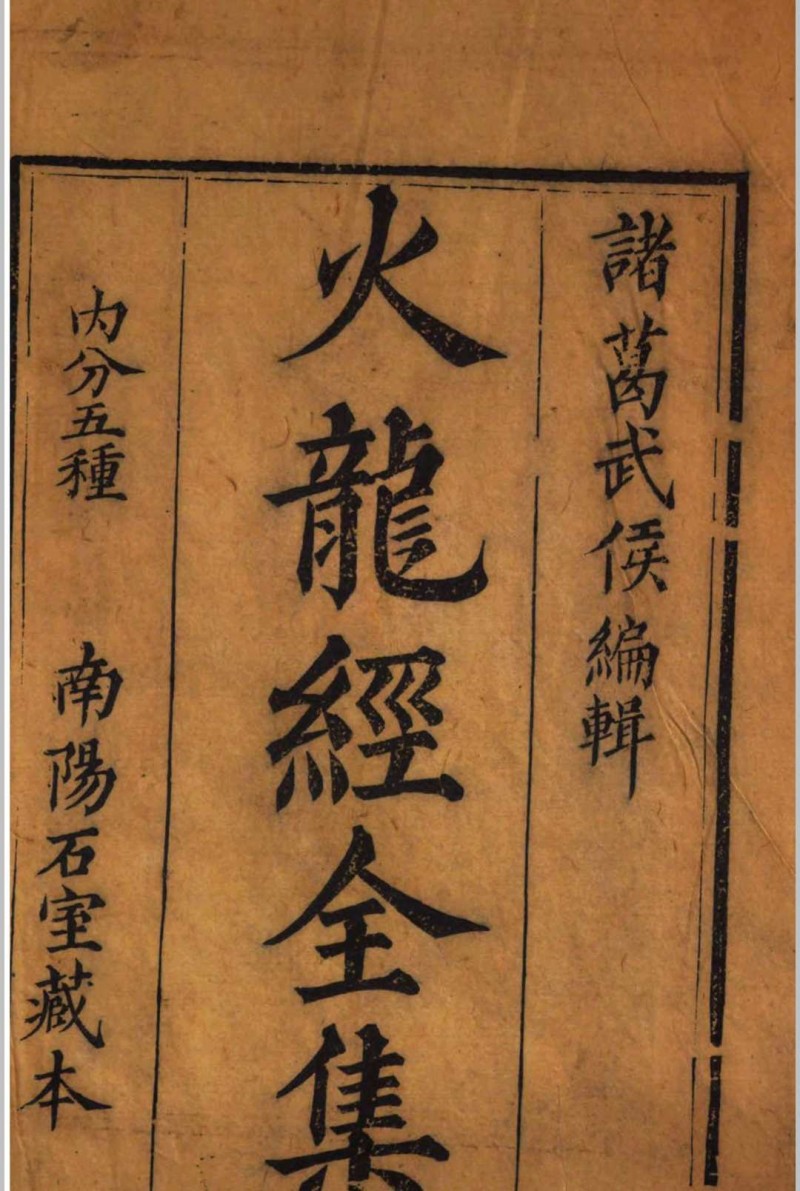 諸葛武侯編輯
火龍經全集
内分五種
南陽石室藏本